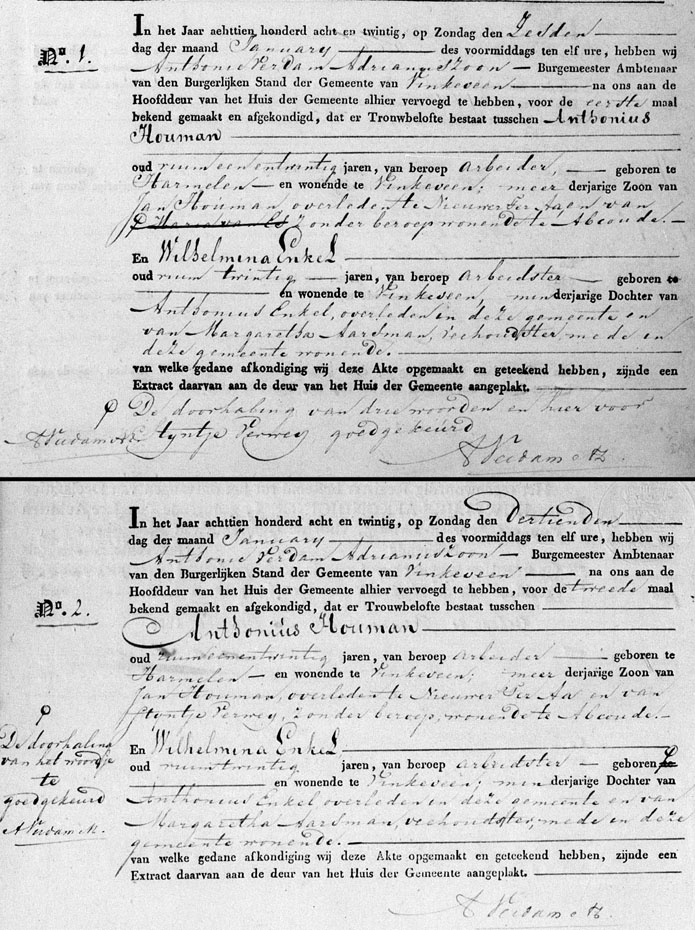 In het Jaar aehttien honderd acht en twintig, op Zondag den Zesden
No. 1. dag der maand January des voormiddags ten elf ure, hebben wij
Anthonie Verdam Adriannszoon Burgemeester Ambtenaar
van den Burgerlijken Stand der Gemeente van Vinkeveen na ons aan de
Hoofddeur van het Huis der Gemeente alhier vervoegd te hebben, voor de eerste maal
bekend gemaakt en afgekondigd, dat er Tronwbelofte bestaat tusschen Anthonius
Houman
oud ruim eenentwintig jaren, van beroep arbeider, geboren te
Harmelen en wonende te Vinkeveen; meer derjarige Zoon van
Jan Houman, overleden te Nieuwer Ter Aa en van
zonder beroep wonende te Abcoude.
En Wilhelmina Enkel
oud ruim twintig jaren, van beroep arbeidster geboren te
en wonende te Vinkeveen, min derjarige Dochter van
Anthonius Enkel, overleden in deze gemeente en
van Margaretha Aarsman, Veehoudster mede in
deze gemeente wonende.
van welke gedane afkondiging wij deze Akte opgemaakt en geteekend hebben, zijnde een
Extract daarvan aan de deur van het Huis der Gemeente aangeplakt.
De doorhaling van drie woorden en hier voor
Styntje Verwey goedgekeurd
A Verdam Az.
In het Jaar achttien honderd acht en twintig, op Zondag den Dertienden
dag der maand January des voormiddags ten elf ure, hebben wij
Anthonie Verdam Adrianuszoon Burgemeester Ambtenaar
van den Burgerlijken Stand der Gemeente van Vinkeveen na ons aan de
Hoofddeur van het Huis der Gemeente alhier vervoegd te hebben, voor de tweede maal
No. 2. bekend gemaakt en afgekondigd, dat er Trouwbelofte bestaat tusschen
Anthonius Houman
oud ruim eenentwintig jaren, van beroep arbeider geboren te
Harmelen en wonende te Vinkeveen; meer derjarige Zoon van
Jan Houman, overleden te Nieuwer Ter Aa en van
Styntje Verwey, zonder beroep, wonende te Abcoude.
En Wilhelmina Enkel
oud ruim twintig jaren, van beroep arbeidster geboren te
en wonende te Vinkeveen; min derjarige Dochter van
Anthonius Enkel overleden in deze gemeente en van
Margaretha Aarsman, veehoudster, mede in deze
gemeente wonende.
van welke gedane afkondiging wij deze Akte opgemaakt en geteekend hebben, zijnde een
Extract daarvan aan de deur van het Huis der Gemeente aangeplakt.
De doorhaling
van het woordje
te
goedgekeurd
A Verdam Az.
A Verdam Az.